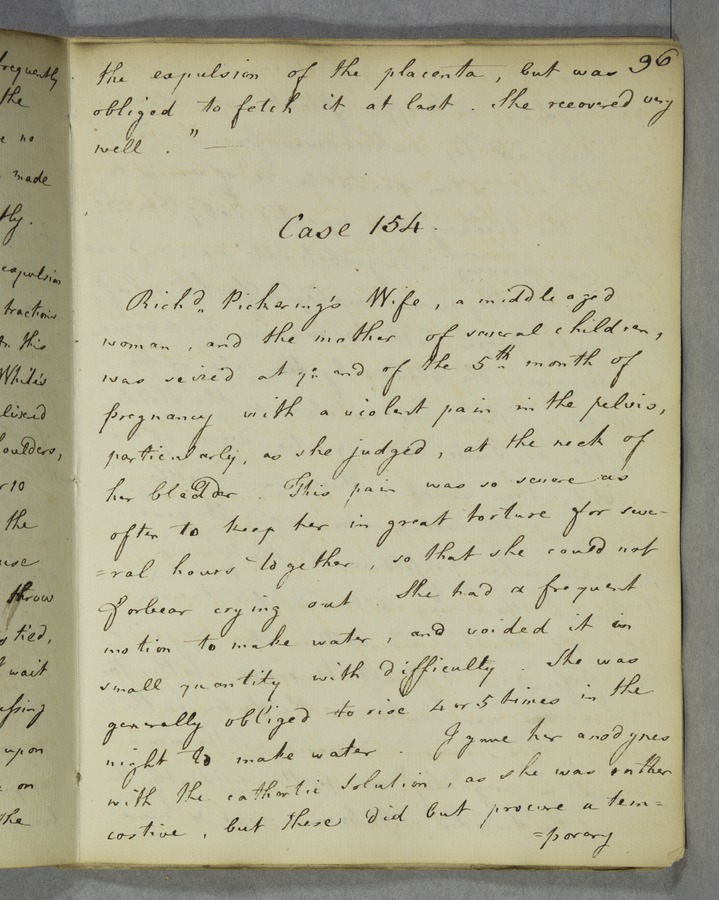 frequently
the
no
made
tly.
expulsion
tractions
this
White's
livered
oulders,
r 10
the
throw
tied,
wait
ssing
upon
on
the
96
the expulsion of the placenta, but was
obliged to fetch it at last. She recovered very
well." —
Case 154.
Richd. Pickering's Wife, a middle aged
woman, and the mother of several children,
was seized at ye end of the 5th month of
pregnancy with a violent pain in the pelvis,
particularly, as she judged, at the neck of
her bladder. This pain was so severe as
often to keep her in great torture for seve-
=ral hours together, so that she could not
forbear crying out. She had a frequent
motion to make water, and voided it in
small quantity with difficulty. She was
generally obliged to rise 4 or 5 times in the
night to make water. I gave her anodynes
with the cathartic solution, as she was rather
costive, but these did but procure a tem=
=porary